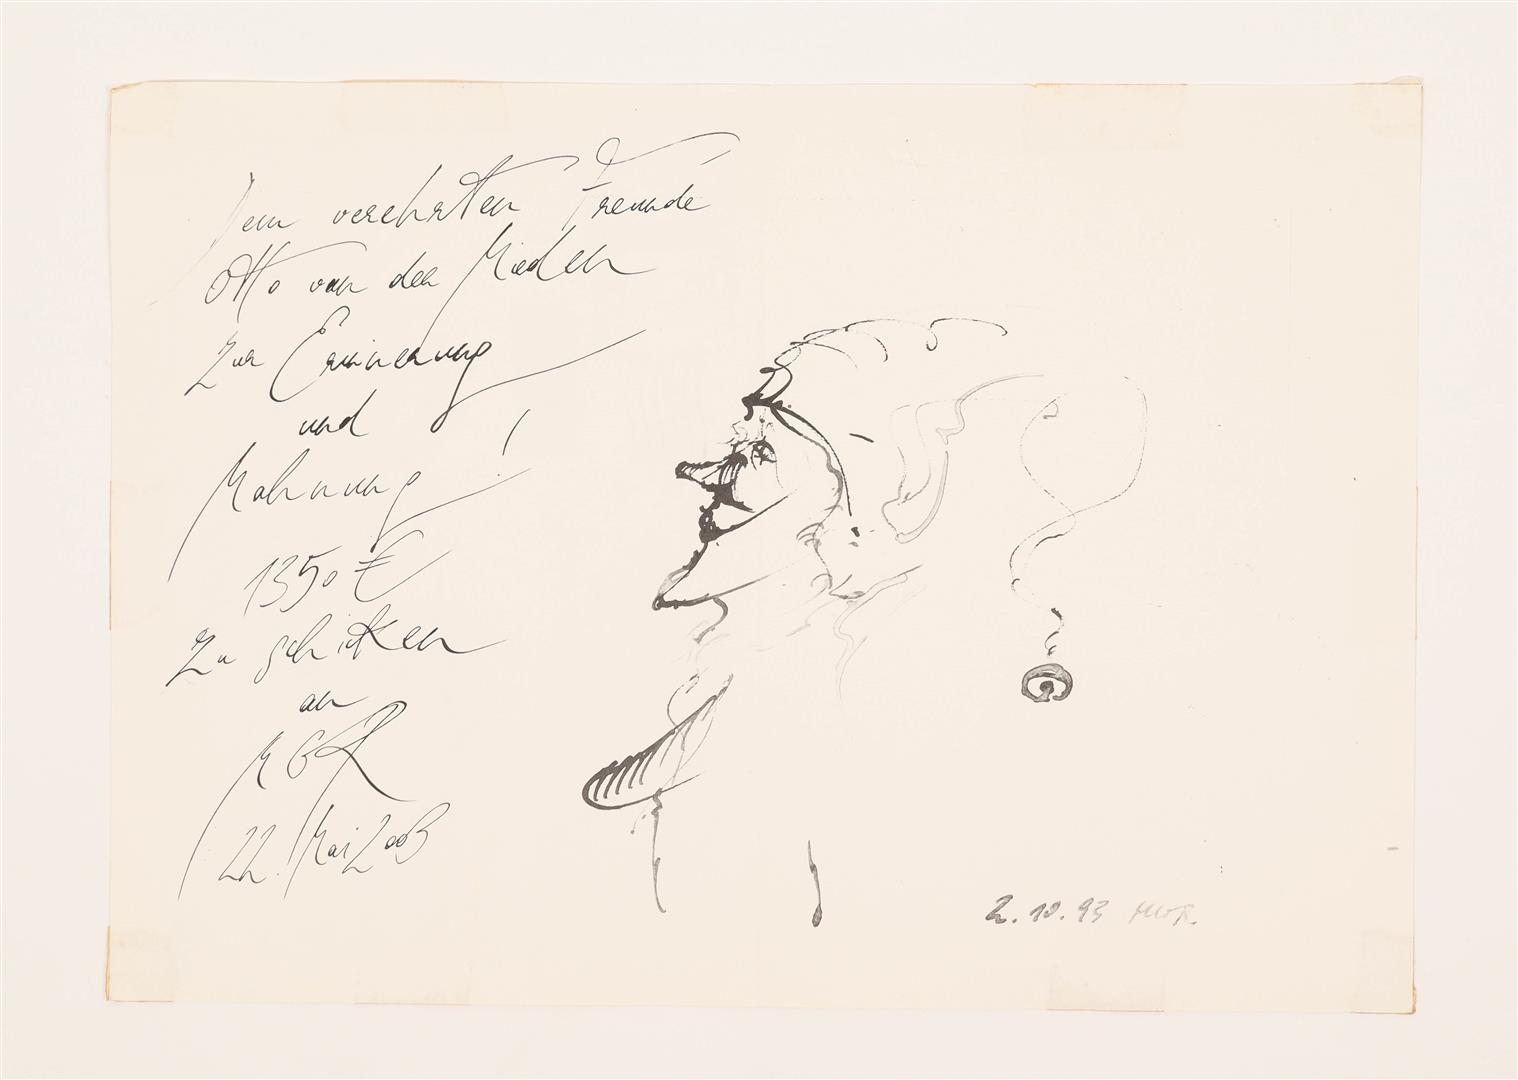 Dem verehrten Freunde
Otto van der Mieden
Zur Erinnerung
und
Mahnung!
1350 €
Zu schicken
an
MGR
22. Mai 2003
2.10.93